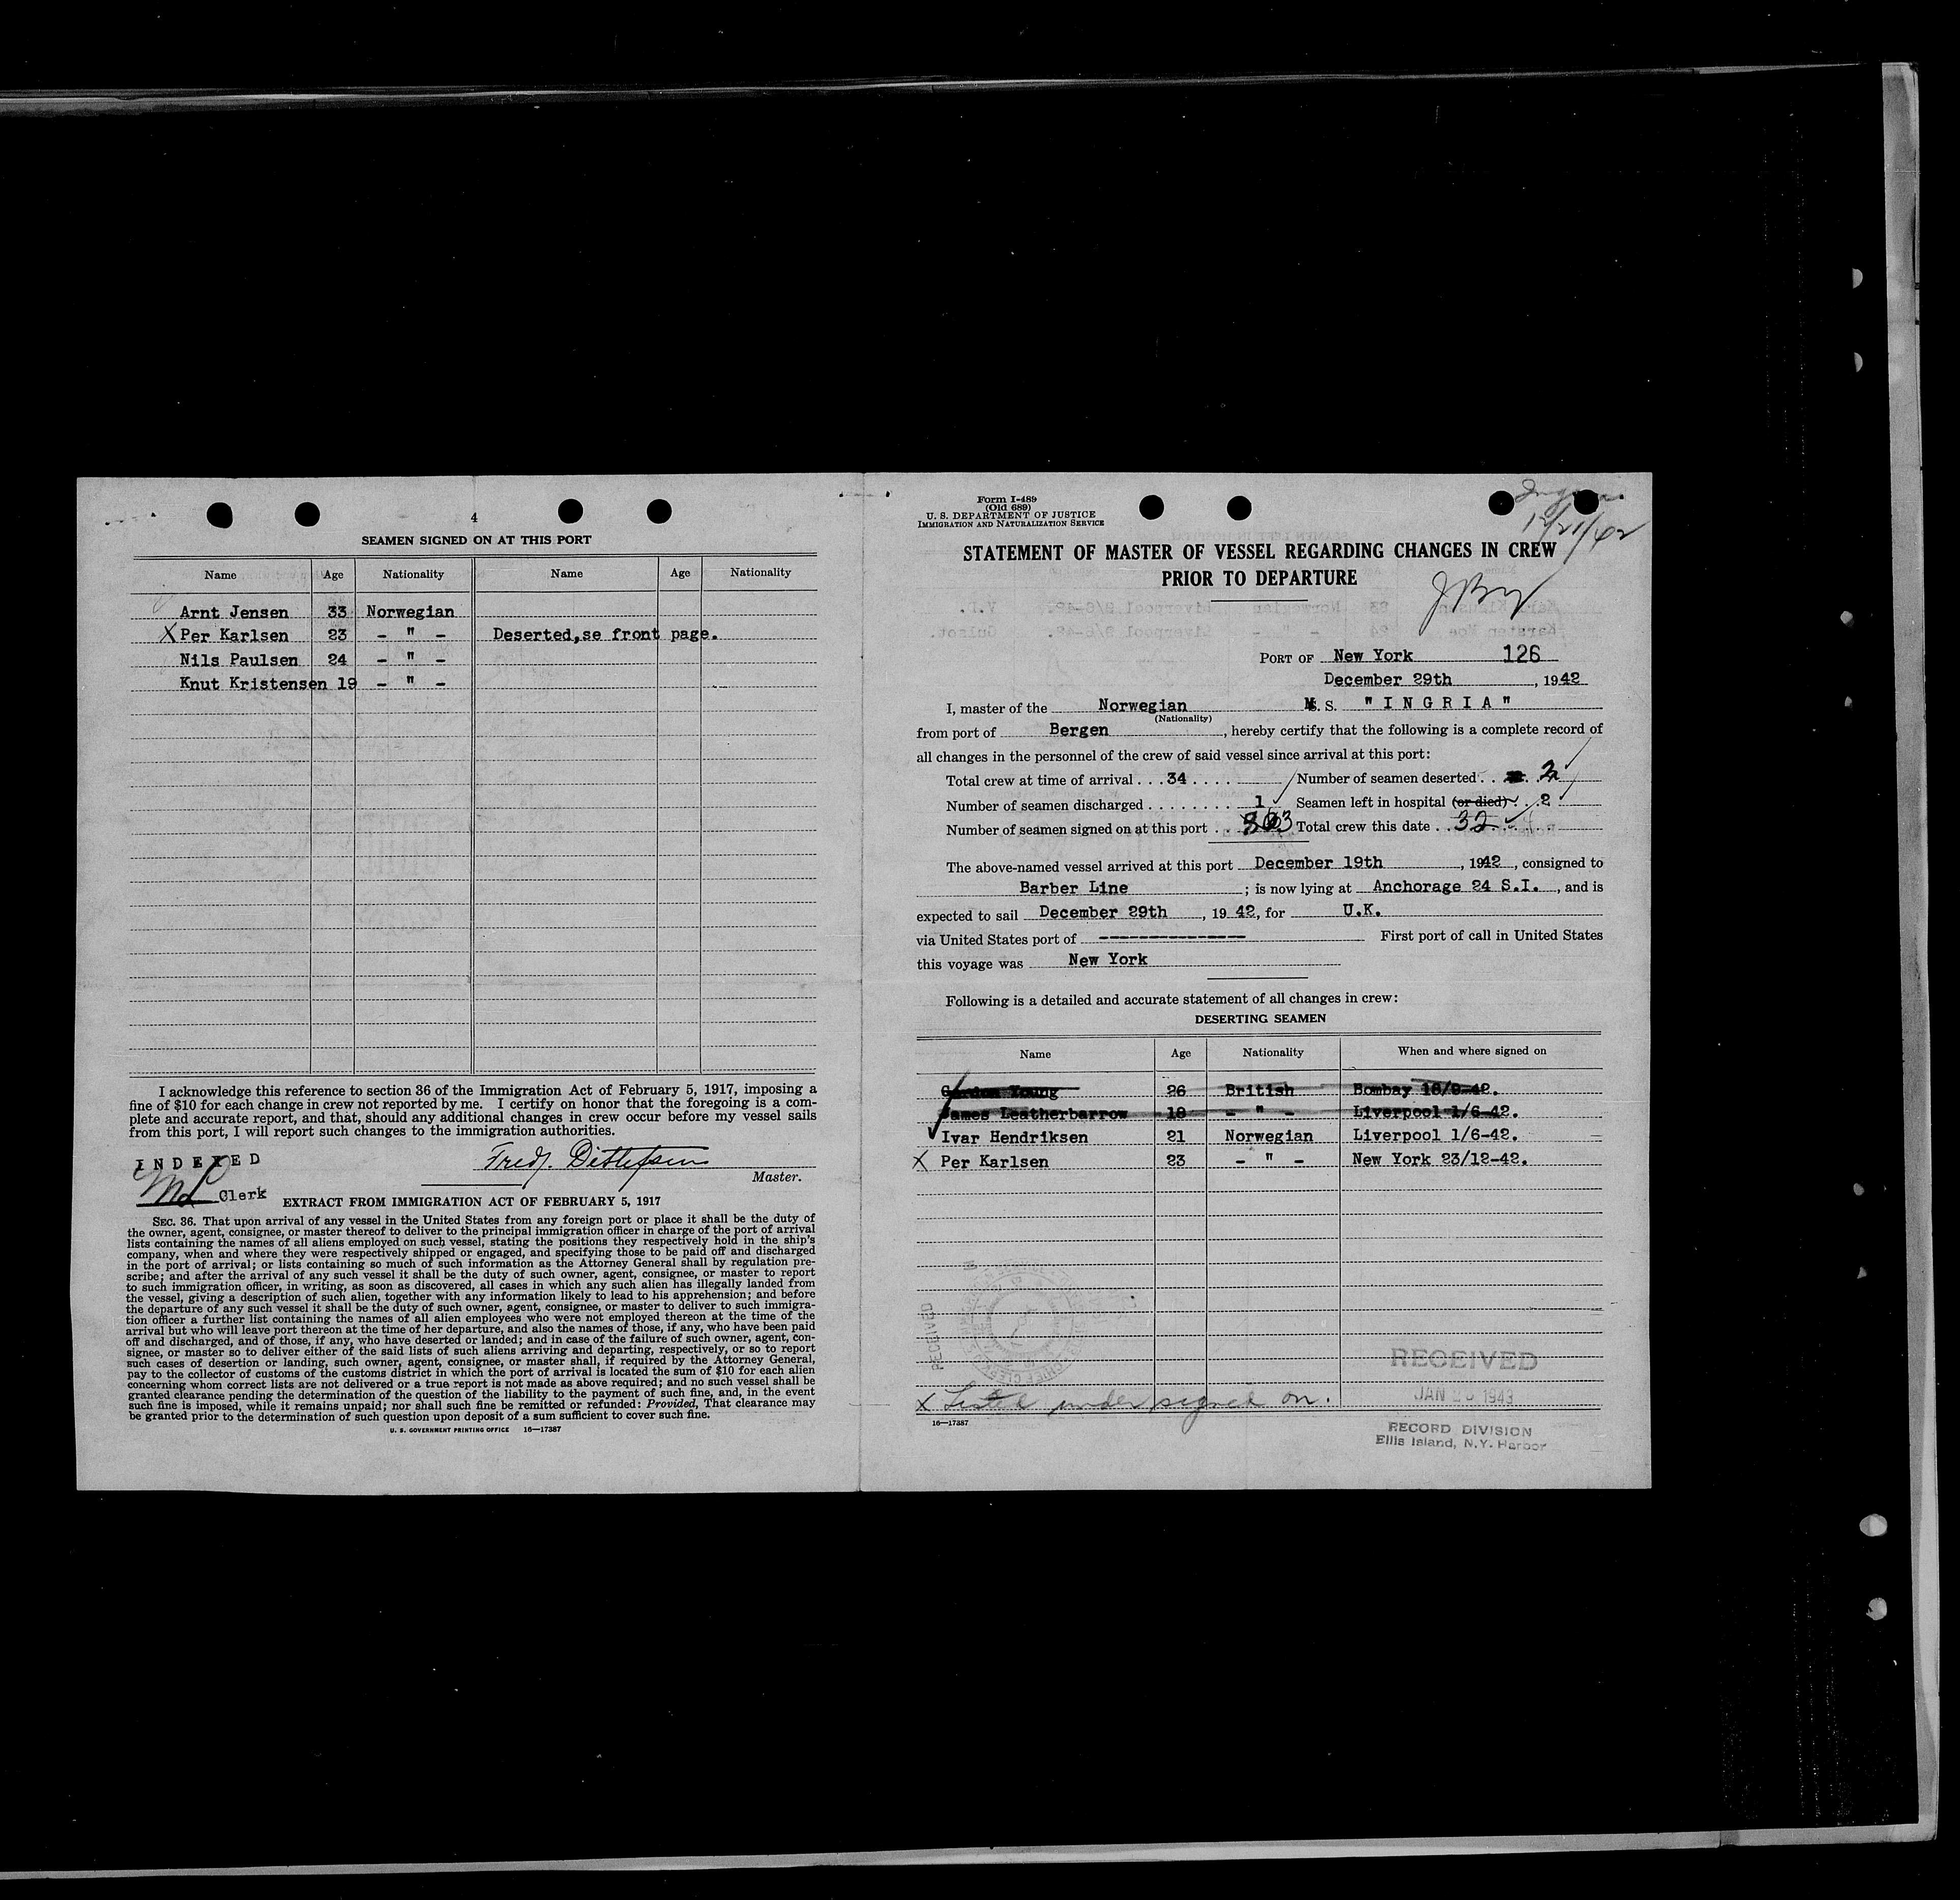 4
SEAMEN SIGNED ON AT THIS PORT
Name Age Nationality Name Age Nationality
Arnt Jensen 33 Norwegian
X Per Karlsen 23 - " - Deserted,se front page.
Nils Paulsen 24 - " -
Knut Kristensen 19 - " -
I acknowledge this reference to section 36 of the Immigration Act of February 5, 1917, imposing a
fine of $10 for each change in crew not reported by me. I certify on honor that the foregoing is a com-
plete and accurate report, and that, should any additional changes in crew occur before my vessel sails
from this port, I will report such changes to the immigration authorities.
INDEXED
Fredj. Ditlefsen
Master.
Clerk
EXTRACT FROM IMMIGRATION ACT OF FEBRUARY 5, 1917
SEC. 36. That upon arrival of any vessel in the United States from any foreign port or place it shall be the duty of
the owner, agent, consignee, or master thereof to deliver to the principal immigration officer in charge of the port of arrival
lists containing the names of all aliens employed on such vessel, stating the positions they respectively hold in the ship's
company, when and where they were respectively shipped or engaged, and specifying those to be paid off and discharged
in the port of arrival; or lists containing so much of such information as the Attorney General shall by regulation pre-
scribe; and after the arrival of any such vessel it shall be the duty of such owner, agent, consignee, or master to report
to such immigration officer, in writing, as soon as discovered, all cases in which any such alien has illegally landed from
the vessel, giving a description of such alien, together with any information likely to lead to his apprehension; and before
the departure of any such vessel it shall be the duty of such owner, agent, consignee, or master to deliver to such immigra-
tion officer a further list containing the names of all alien employees who were not employed thereon at the time of the
arrival but who will leave port thereon at the time of her departure, and also the names of those, if any, who have been paid
off and discharged, and of those, if any, who have deserted or landed; and in case of the failure of such owner, agent, con-
signee, or master so to deliver either of the said lists of such aliens arriving and departing, respectively, or so to report
such cases of desertion or landing, such owner, agent, consignee, or master shall, if required by the Attorney General,
pay to the collector of customs of the customs district in which the port of arrival is located the sum of $10 for each alien
concerning whom correct lists are not delivered or a true report is not made as above required; and no such vessel shall be
granted clearance pending the determination of the question of the liability to the payment of such fine, and, in the event
such fine is imposed, while it remains unpaid; nor shall such fine be remitted or refunded: Provided, That clearance may
be granted prior to the determination of such question upon deposit of a sum sufficient to cover such fine.
U. S. GOVERNMENT PRINTING OFFICE 16—17387
Form I-489
(Old 689)
U. S. DEPARTMENT OF JUSTICE
IMMIGRATION AND NATURALIZATION SERVICE
12/21/42
STATEMENT OF MASTER OF VESSEL REGARDING CHANGES IN CREW
PRIOR TO DEPARTURE
PORT OF New York 126
December 29th, 1942
I, master of the Norwegian M.S. "INGRIA"
(Nationality)
from port of Bergen, hereby certify that the following is a complete record of
all changes in the personnel of the crew of said vessel since arrival at this port:
Total crew at time of arrival . . . 34 . . . . Number of seamen deserted . . 2
Number of seamen discharged . . . . . . . . 1 Seamen left in hospital (or died) . . 2
Number of seamen signed on at this port . . 3 Total crew this date . . 32 . . . .
The above-named vessel arrived at this port December 19th, 1942, consigned to
Barber Line; is now lying at Anchorage 24 S.I., and is
expected to sail December 29th, 1942, for U.K.
via United States port of --------------- First port of call in United States
this voyage was New York
Following is a detailed and accurate statement of all changes in crew:
DESERTING SEAMEN
Name Age Nationality When and where signed on
Gordon Young 26 British Bombay 18/9-42.
James Leatherbarrow 18 - " - Liverpool 1/6-42.
Ivar Hendriksen 21 Norwegian Liverpool 1/6-42.
X Per Karlsen 23 - " - New York 23/12-42.
RECEIVED
RECEIVED
JAN 1943
x Listed under signed on.
16—17387
RECORD DIVISION
Ellis Island, N.Y. Harbor